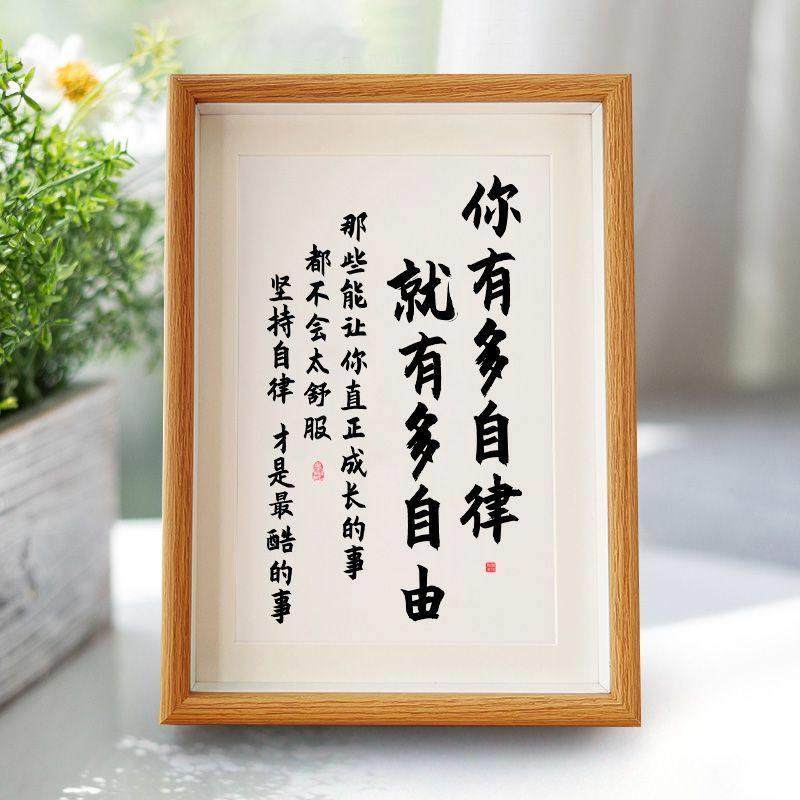 你有多自律
就有多自由
那些能让你直正成长的事
都不会太舒服
坚持自律 才是最酷的事